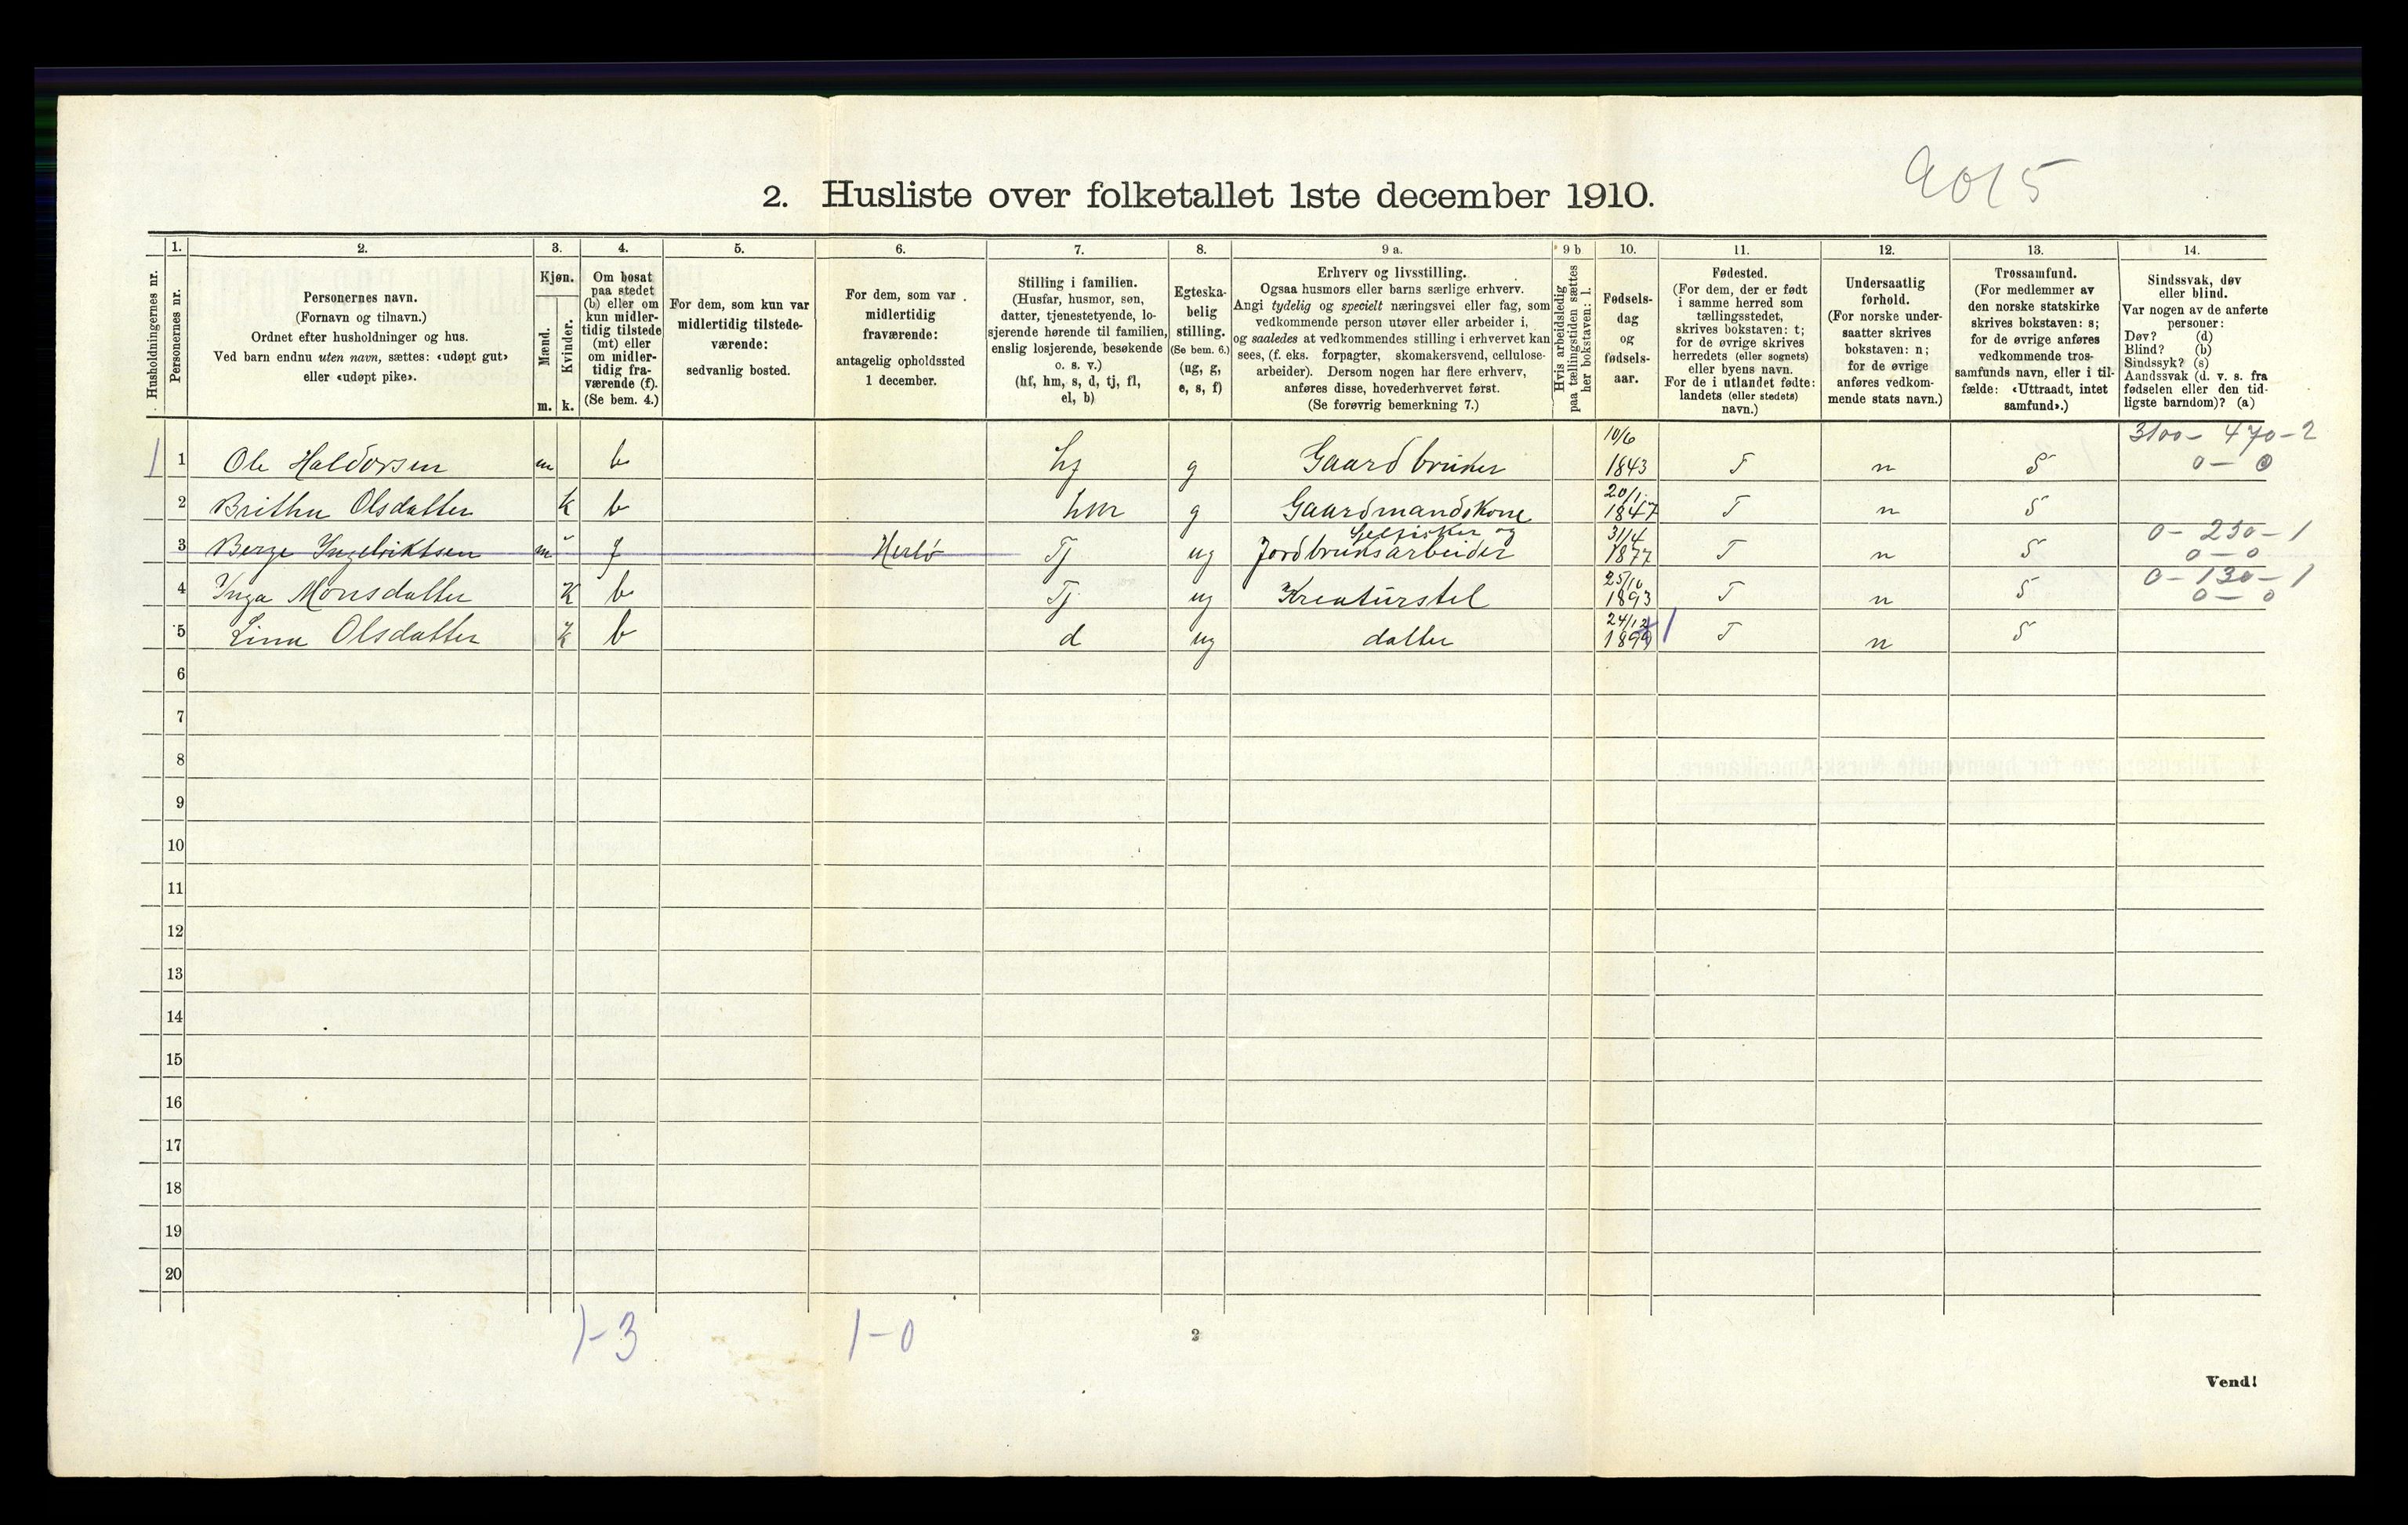 9015
2. Husliste over folketallet 1ste december 1910.
Husholdningernes nr.
1.
Personernes nr.
2.
Personernes navn.
(Fornavn og tilnavn.)
Ordnet efter husholdninger og hus.
Ved barn endnu uten navn, sættes: «udøpt gut»
eller «udøpt pike».
3.
Kjøn.
Mænd.
Kvinder.
m. k.
4.
Om bosat
paa stedet
(b) eller om
kun midler-
tidig tilstede
(mt) eller
om midler-
tidig fra-
værende (f).
(Se bem. 4.)
5.
For dem, som kun var
midlertidig tilstede-
værende:
sedvanlig bosted.
6.
For dem, som var
midlertidig
fraværende:
antagelig opholdssted
1 december.
7.
Stilling i familien.
(Husfar, husmor, søn,
datter, tjenestetyende, lo-
sjerende hørende til familien,
enslig losjerende, besøkende
o. s. v.)
(hf, hm, s, d, tj, fl,
el, b)
8.
Egteska-
belig
stilling.
(Se bem. 6.)
(ug, g,
e, s, f)
9 a.
Erhverv og livsstilling.
Ogsaa husmors eller barns særlige erhverv.
Angi tydelig og specielt næringsvei eller fag, som
vedkommende person utøver eller arbeider i,
og saaledes at vedkommendes stilling i erhvervet kan
sees, (f. eks. forpagter, skomakersvend, cellulose-
arbeider). Dersom nogen har flere erhverv,
anføres disse, hovederhvervet først.
(Se forøvrig bemerkning 7.)
9 b
Hvis arbeidsledig
paa tællingstiden sættes
her bokstaven: l.
10.
Fødsels-
dag
og
fødsels-
aar.
11.
Fødested.
(For dem, der er født
i samme herred som
tællingsstedet,
skrives bokstaven: t;
for de øvrige skrives
herredets (eller sognets)
eller byens navn.
For de i utlandet fødte:
landets (eller stedets)
navn.)
12.
Undersaatlig
forhold.
(For norske under-
saatter skrives
bokstaven: n;
for de øvrige
anføres vedkom-
mende stats navn.)
13.
Trossamfund.
(For medlemmer av
den norske statskirke
skrives bokstaven: s;
for de øvrige anføres
vedkommende tros-
samfunds navn, eller i til-
fælde: «Uttraadt, intet
samfund».)
14.
Sindssvak, døv
eller blind.
Var nogen av de anførte
personer:
Døv? (d)
Blind? (b)
Sindssyk? (s)
Aandssvak (d. v. s. fra
fødselen eller den tid-
ligste barndom)? (a)
10/6 3100 - 470 - 2
1 1 Ole Haldorsen m b hf g Gaardbruker 1843 T n S 0 - 0
20/1
2 Brithe Olsdatter k b hm g Gaardmandskone 1847 T n S
Selfisker og 31/4 0 - 230 - 1
3 Berge Ingebriktsen m f Herlø Tj ug Jordbruksarbeider 1877 T n S 0 - 0
25/10 0 - 130 - 1
4 Inga Monsdatter K b Tj ug Kreaturstel 1893 T n S 0 - 0
24/12
5 Lina Olsdatter k b d ug datter 1899 1 T n S
6
7
8
9
10
11
12
13
14
15
16
17
18
19
20
1-3 1-0
2
Vend!